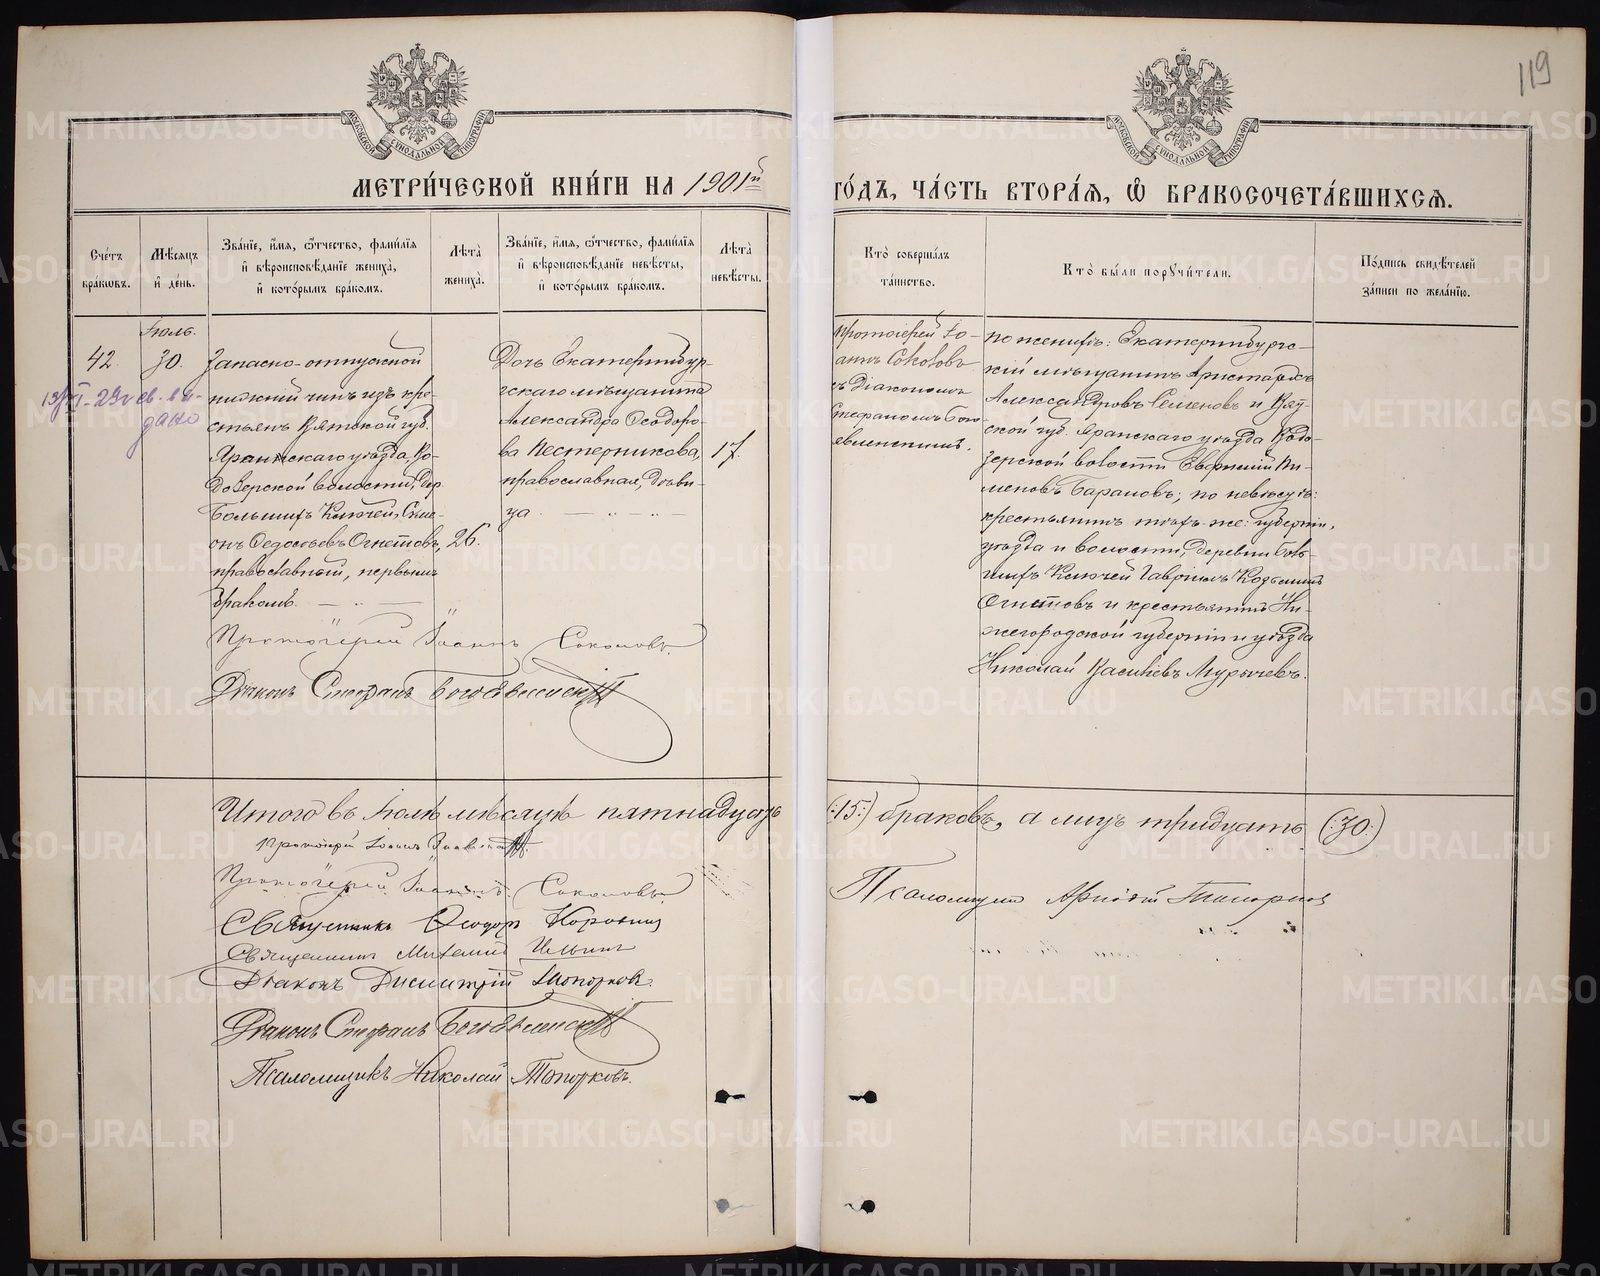 119
МОСКОВСКОЙ СѴНОДАЛЬНОЙ ТИПОГРАФІИ
МОСКОВСКОЙ СѴНОДАЛЬНОЙ ТИПОГРАФІИ
МЕТРИ́ЧЕСКОЙ КНИ́ГИ НА 1901й
ГО́ДЪ, ЧА́СТЬ ВТОРА́Я, Ѽ БРАКОСОЧЕТА́ВШИХСЯ.
Сче́тъ бра́ковъ.
Мѣ́сяцъ и҆ де́нь.
Зва́нїе, и҆́мя, ѻ҆́тчество, фами́лїя
и҆ вѣроисповѣ́данїе жениха̀,
и҆ кото́рымъ бра́комъ.
Лѣ́та̀ жениха̀.
Зва́нїе, и҆́мя, ѻ҆́тчество, фами́лїя
и҆ вѣроисповѣ́данїе невѣ́сты,
и҆ кото́рымъ бра́комъ.
Лѣ́та̀ невѣ́сты.
Кто̀ соверша́лъ
та́инство.
Кто̀ бы́ли порꙋчи́тели.
По́дпись свидѣ́телей
за́писи по жела́нїю.
Іюль.
42. 30.
Запасно-отпускной
нижній чинъ изъ кре-
стьянъ Вятской губ.
Яранскаго уѣзда, Ко-
дозерской волости, дер.
Большихъ Ключей, Симе-
онъ Федосѣевъ Огнетовъ, 26.
православный, первымъ
бракомъ.
Дочь Екатеринбур-
гскаго мѣщанина
Александра Ѳеодоро-
ва Нестерникова, 17.
православная, дѣви-
ца
Протоіерей Іо-
аннъ Соколовъ
съ Діакономъ
Стефаномъ Бого-
явленскимъ.
по женихѣ: Екатеринбургс-
кій мѣщанинъ Аристархъ
Александровъ Семеновъ и Вят-
ской губ. Яранскаго уѣзда Кодо-
зерской волости Евфимій Пи-
меновъ Барановъ; по невѣстѣ:
крестьянинъ тѣхъ-же: губерніи,
уѣзда и волости, деревни Боль-
шихъ Ключей Гавріилъ Козьминъ
Огнетовъ и крестьянинъ Ни-
жегородской губерніи и уѣзда
Николай Васильевъ Мурычевъ.
Протоіерей Іоаннъ Соколовъ.
Діаконъ Стефанъ Богоявленскій
Итого въ Іюлѣ мѣсяцѣ пятнадцать (:15:) браковъ, а лицъ тридцать (:30:)
Протоіерей Іоаннъ
Протоіерей Іоаннъ Соколовъ
Священникъ Ѳеодоръ Коровинъ
Священникъ Ильинъ
Діаконъ Димитрій Топорковъ.
Діаконъ Стефанъ Богоявленскій
Псаломщикъ Николай Топорковъ.
Псаломщикъ
METRIKI.GASO-URAL.RU